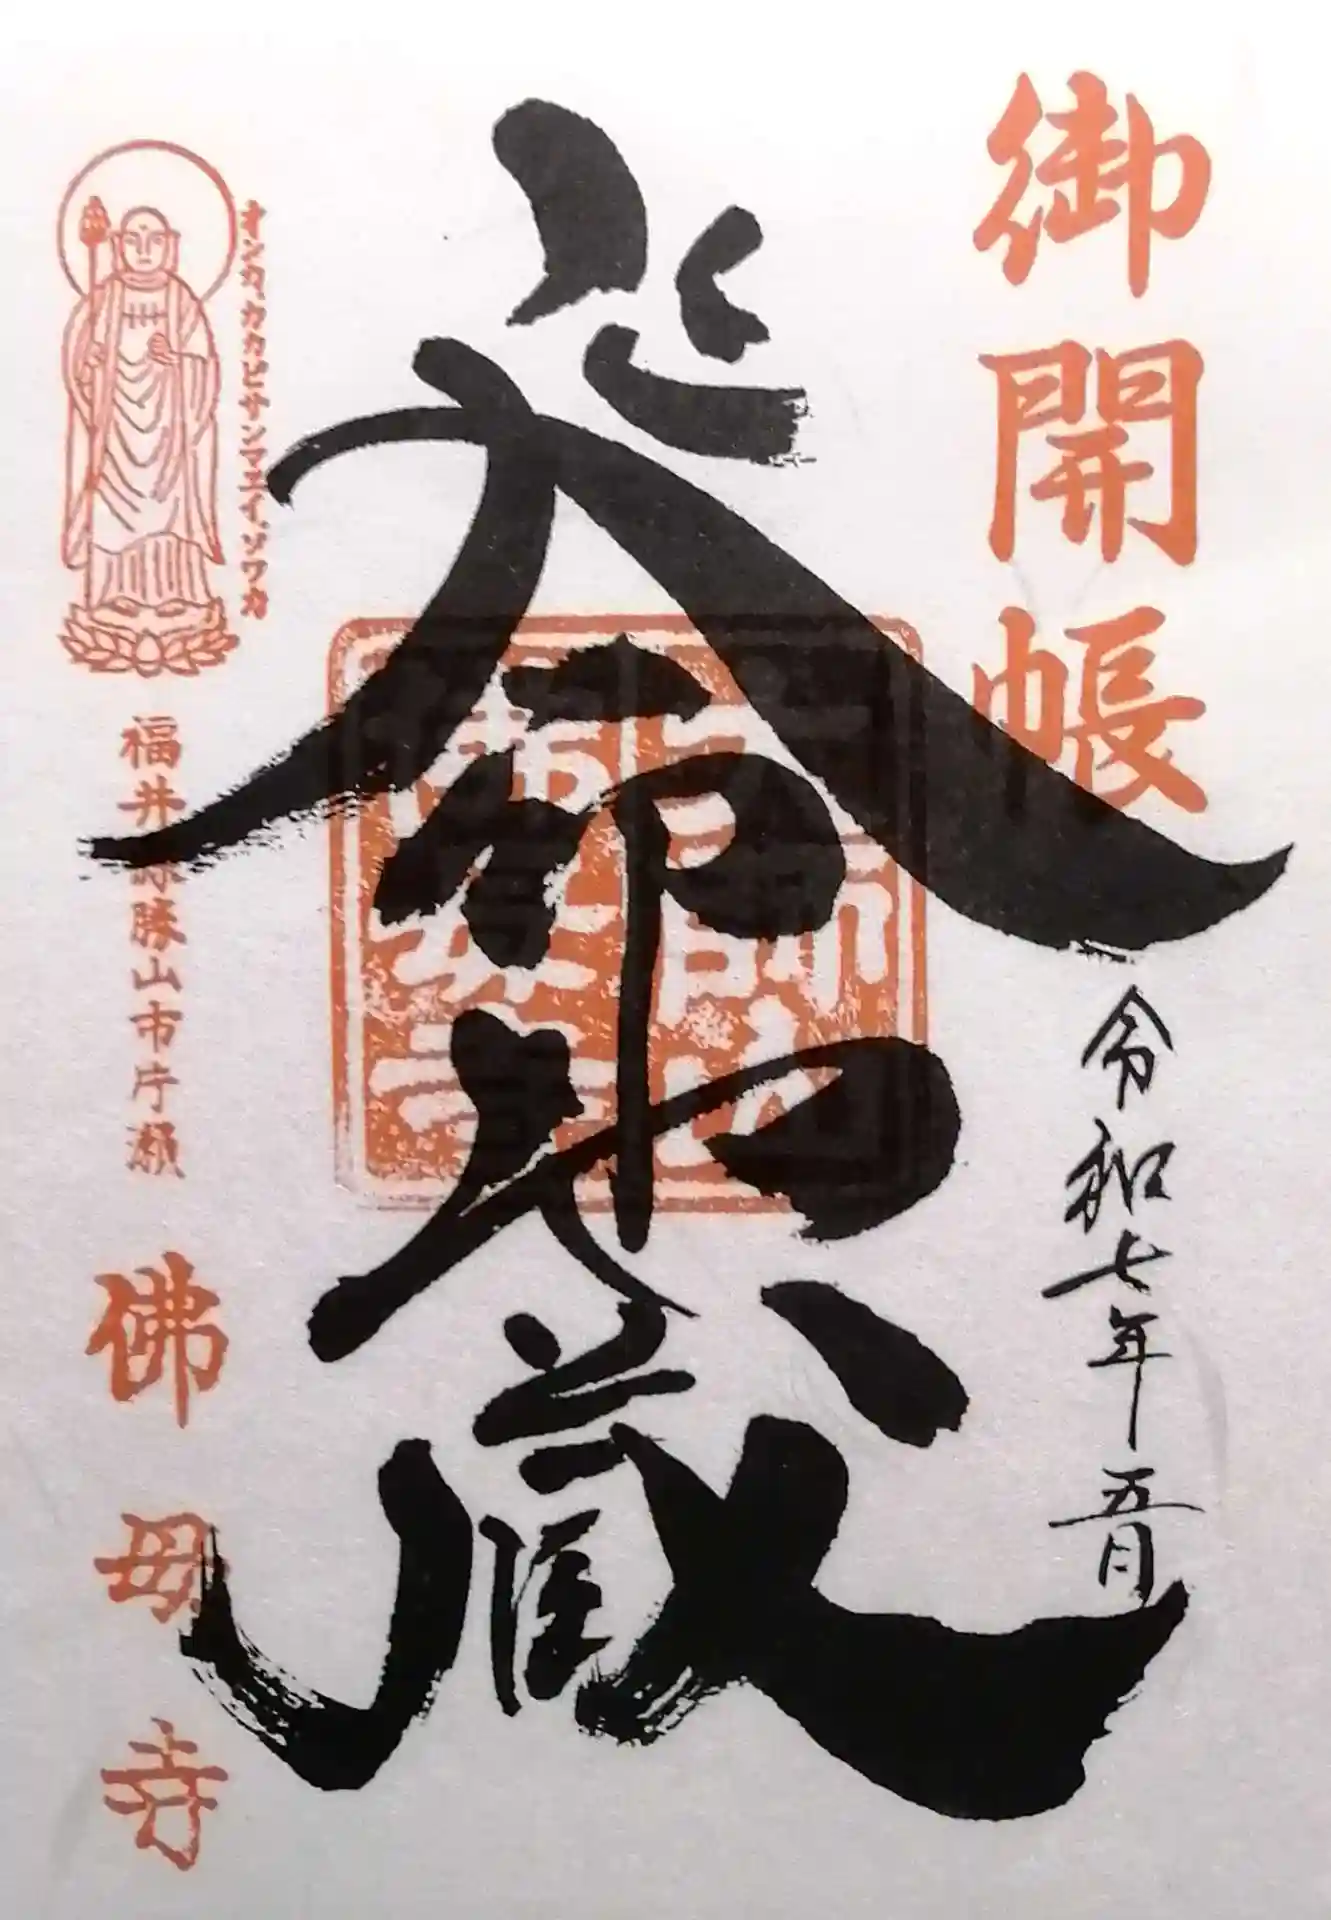 御開帳
令和七年五月
延命地蔵
師山
佛母寺
オンカ、カカビサンマエイ、ソワカ
福井県勝山市片瀬
佛母寺